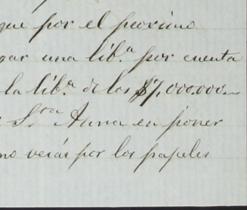 que por el proximo
gar una lib.ª por cuenta
la lib.ª de los $7,000.000.
Sta Anna en poner
no verás por los papeles